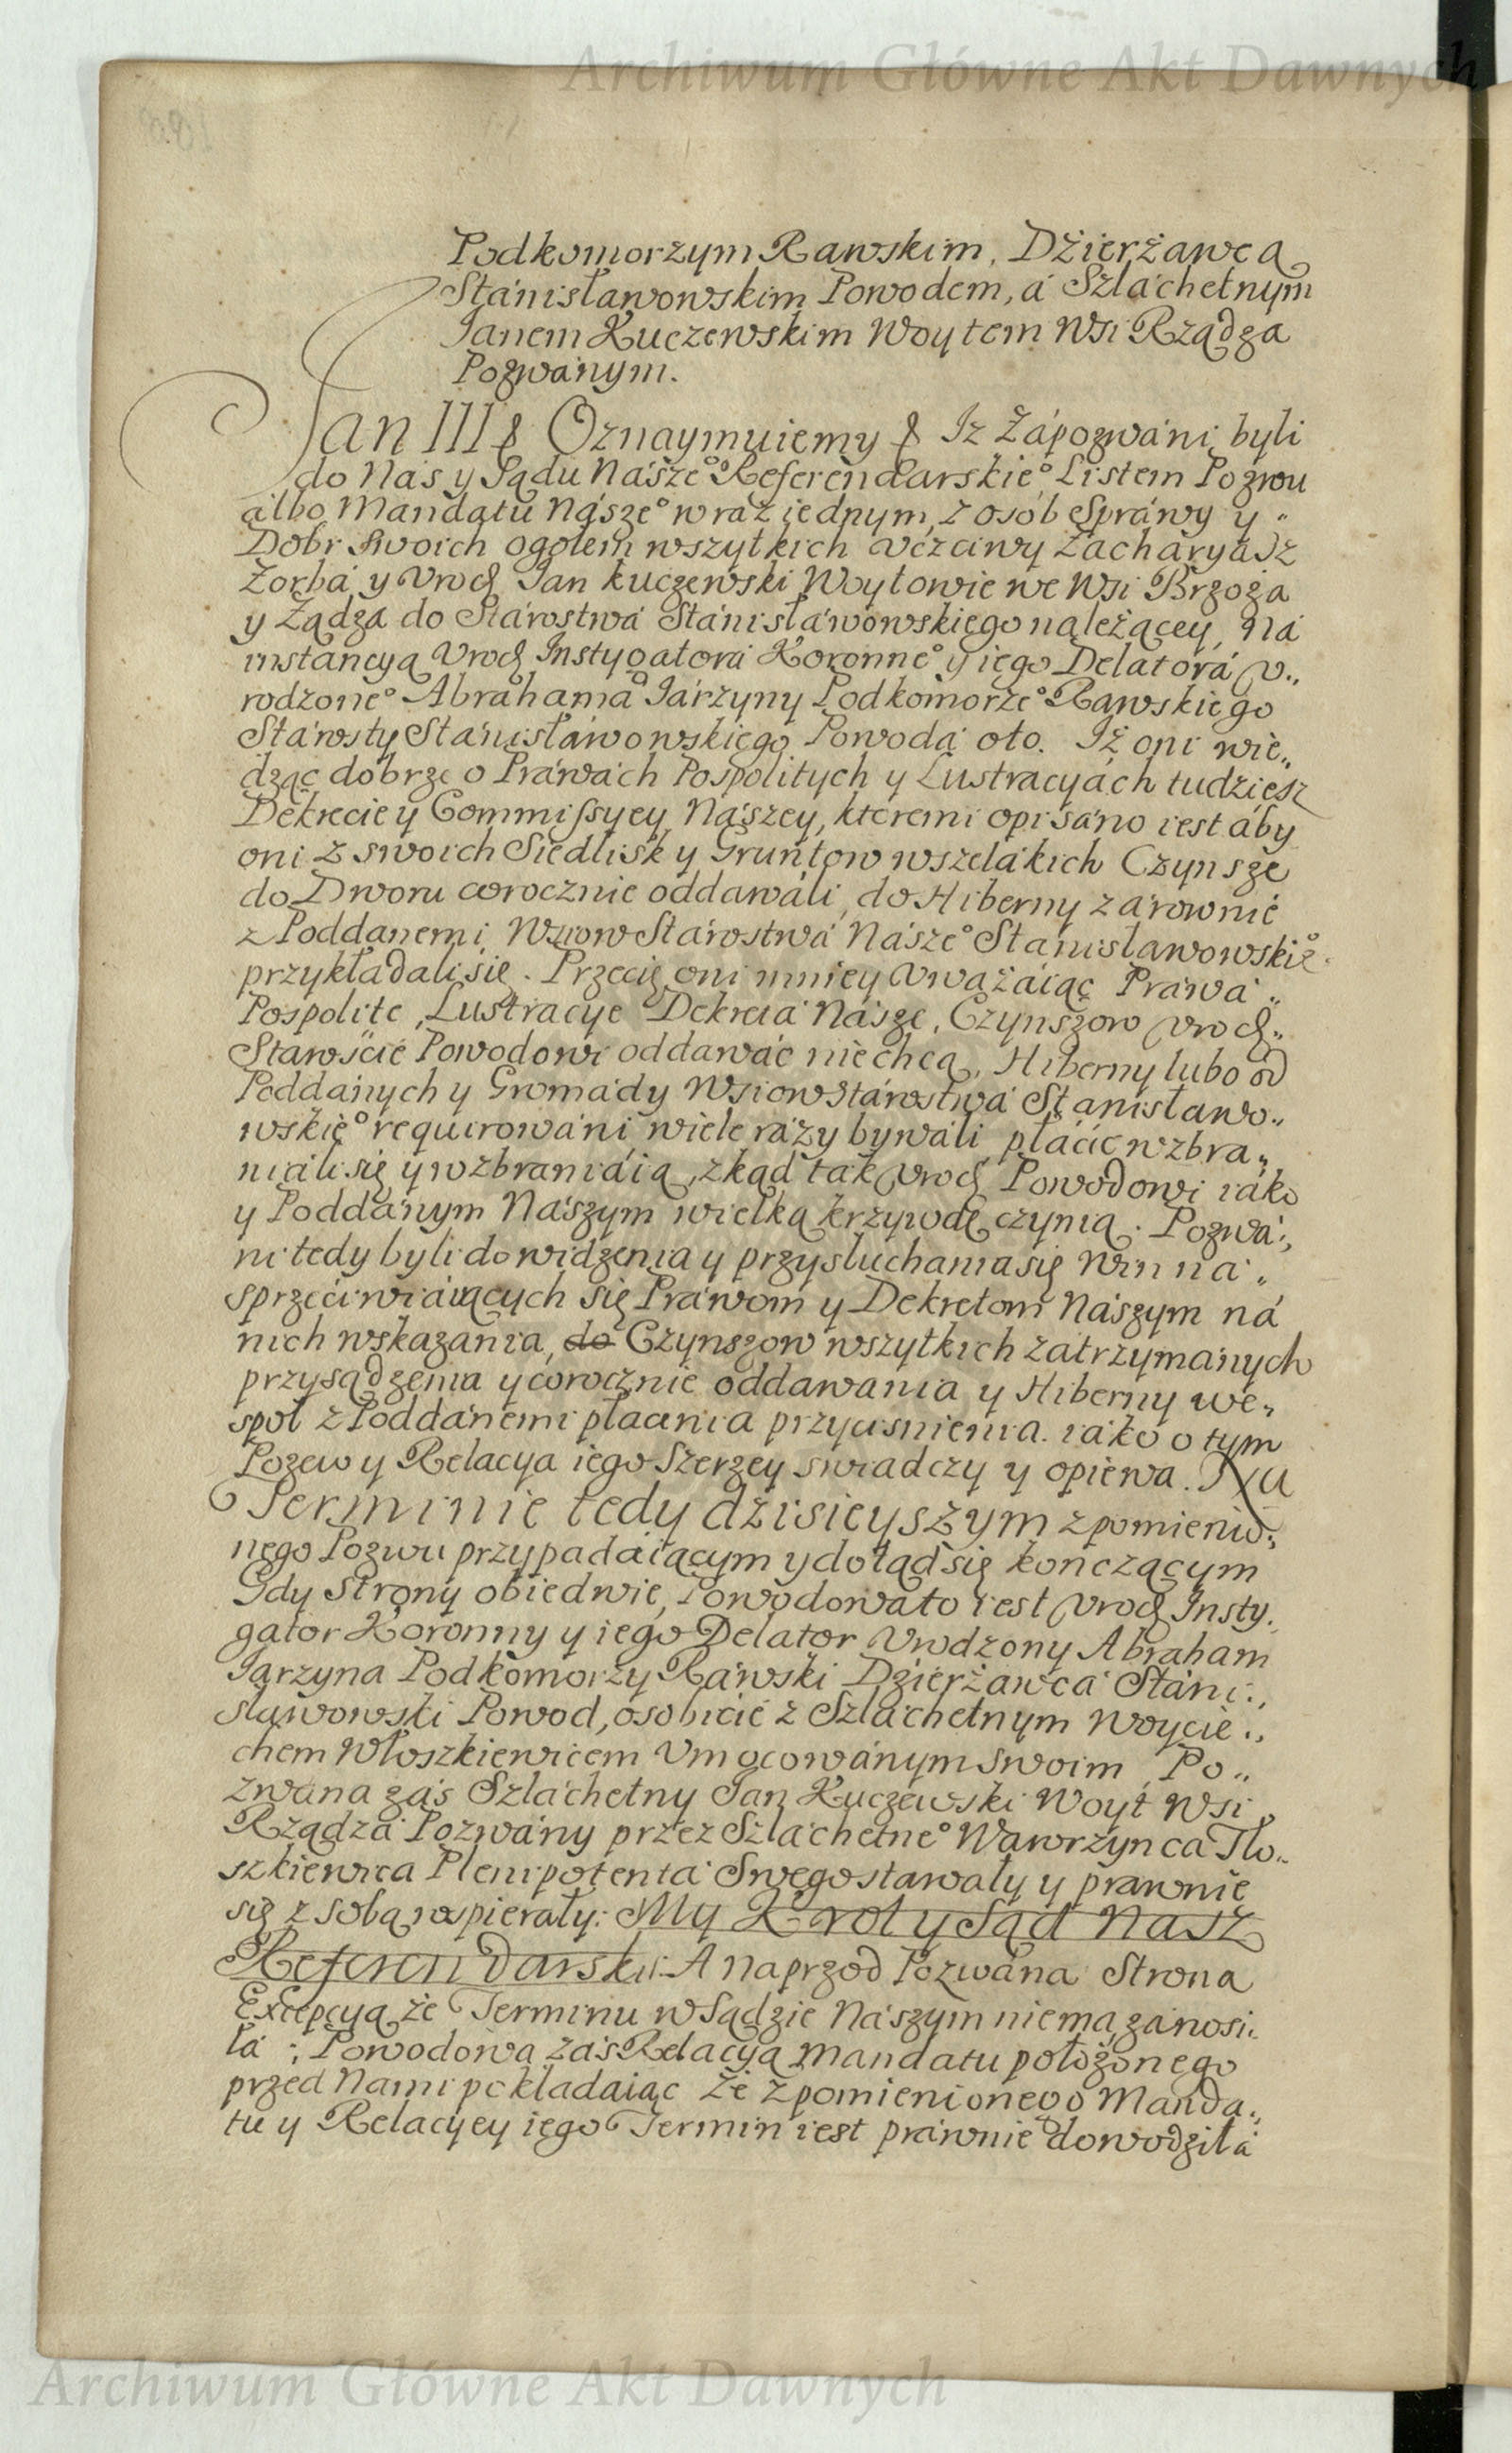 Archiwum Główne Akt Dawnych
Podkomorzym Rawskim, Dźierżawcą
Stánisławowskim Powodem, á Szláchetnym
Ianem Kuczewskim Woytem Wsi Rządza
Pozwánym.
Jan III & Oznaymuiemy & Iz Zápozwáni byli
do Nas y Sądu Nasze° Referendarskie° Listem Pozwu
álbo Mandatu Násze° wraz iednym, z osob Spráwy y„
Dobr Swoich ogołem wszytkich Vczciwy Zacháryasz
Zorbá y Vrodz Ian Kuczewski Woytowie we Wsi Brzoza
y Ządza do Stárostwá Stánisłáwowskiego należącey, ná
instáncyą Vrodz Instygatorá Koronne° y iego Delatorá V„
rodzone° Abrahamá Iárzyny Podkomorze° Rawskiego
Stárosty Stánisłáwowskiego Powodá oto. Iż oni wie„
dząc dobrze o Práwách Pospolitych y Lustracyách tudziesz
Dekrecie y Commissyey Nászey, ktoremi opisáno iest áby
oni z swoich Siedlisk y Gruntow wszelákich Czynsze
do Dworu corocznie oddawáli, do Hiberny zárownie
z Poddanemi Wsiow Stárostwá Násze° Stánisławowskie°
przykładali się. Przecię oni mniey Vważáiąc Práwá„
Pospolite, Lustracye Dekretá Násze, Czynszow Vrodz„
Staroście Powodowi oddawáć niechcą, Hiberny lubo od
Poddánych y Gromády Wsiow Stárostwá Stanisławo„
wskie° requirowáni wiele rázy bywáli płácić wzbra„
niáli się y wzbraniáią, zkąd ták Vrodz Powodowi iáko
y Poddánym Nászym wielką krzywdę czynią. Pozwá„
ni tedy byli do widzenia y przysłuchania się Win ná„
sprzeciwiáiących się Práwom y Dekretom Nászym ná
nich wskazania, do Czynszow wszytkich zatrzymánych
przysądzenia y corocznie oddawania y Hiberny we„
społ z Poddánemi płacenia przyciśnienia. iáko o tym
Pozew y Relacya iego szerzey świadczy y opiewa. Na
Terminie tedy dźisieyszym z pomienio„
nego Pozwu przypadáiącym y dotąd się kończącym
Gdy Strony obiedwie, Powodowa to iest Vrodz Insty„
gator Koronny y iego Delator Vrodzony Abraham
Iarzyna Podkomorzy Ráwski Dźierżawcá Stáni„
sławowski Powod, osobicie z Szláchetnym Woycie„
chem Włoszkiewicem Vmocowánym swoim, Po„
zwána zás Szláchetny Ian Kuczewski Woyt Wsi
Rządzá Pozwány przez Szláchetne° Wawrzynca Tło„
szkiewica Plenipotentá Swego stawały y prawnie
się z sobą wspierały: My Krol y Sąd Nasz
Referendarski: A naprzod Pozwána Stroná
Excepcyą że Terminu w Sądzie Nászym niema zánosi„
łá; Powodowa zás Relacyą Mandatu położonego
przed Nami pokładaiąc że z pomienionego Manda„
tu y Relacyey iego Termin iest práwnie dowodziłá
Archiwum Główne Akt Dawnych